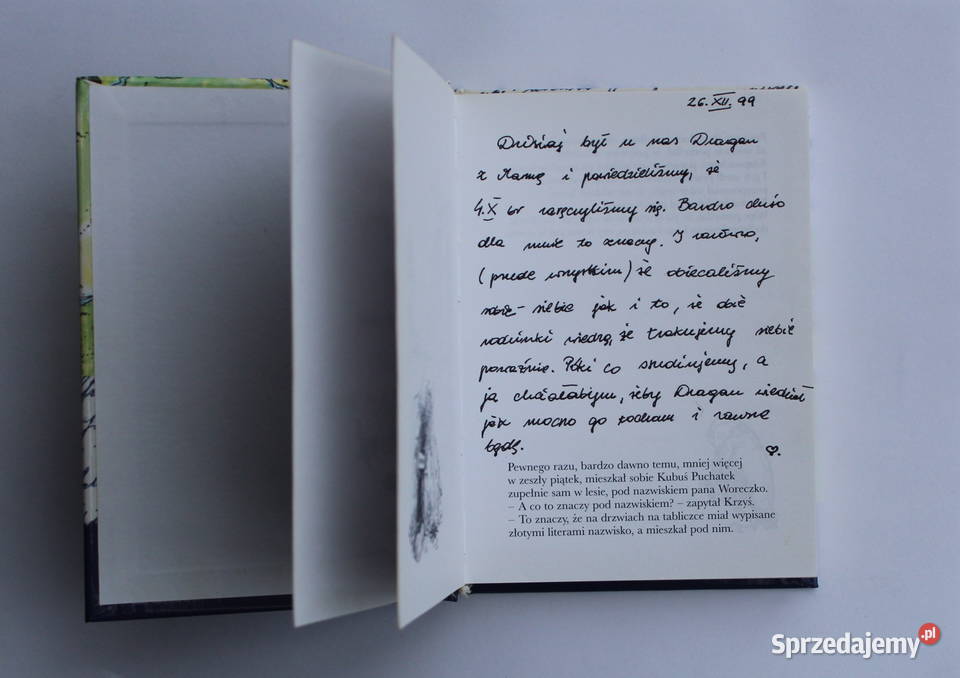 26.XII.99
Dzisiaj był u nas Dragan
z Mamą i powiedzieliśmy, że
4.X br zaręczyliśmy się. Bardzo dużo
dla mnie to znaczy. I zarówno,
(przede wszystkim) że obiecaliśmy
siebie jak i to, że obie
rodzinki wiedzą, że traktujemy siebie
poważnie. Póki co studiujemy, a
ja chciałabym, żeby Dragan wiedział
jak mocno go kocham i zawsze
będę.
Pewnego razu, bardzo dawno temu, mniej więcej
w zeszły piątek, mieszkał sobie Kubuś Puchatek
zupełnie sam w lesie, pod nazwiskiem pana Woreczko.
– A co to znaczy pod nazwiskiem? – zapytał Krzyś.
– To znaczy, że na drzwiach na tabliczce miał wypisane
złotymi literami nazwisko, a mieszkał pod nim.
Sprzedajemy.pl